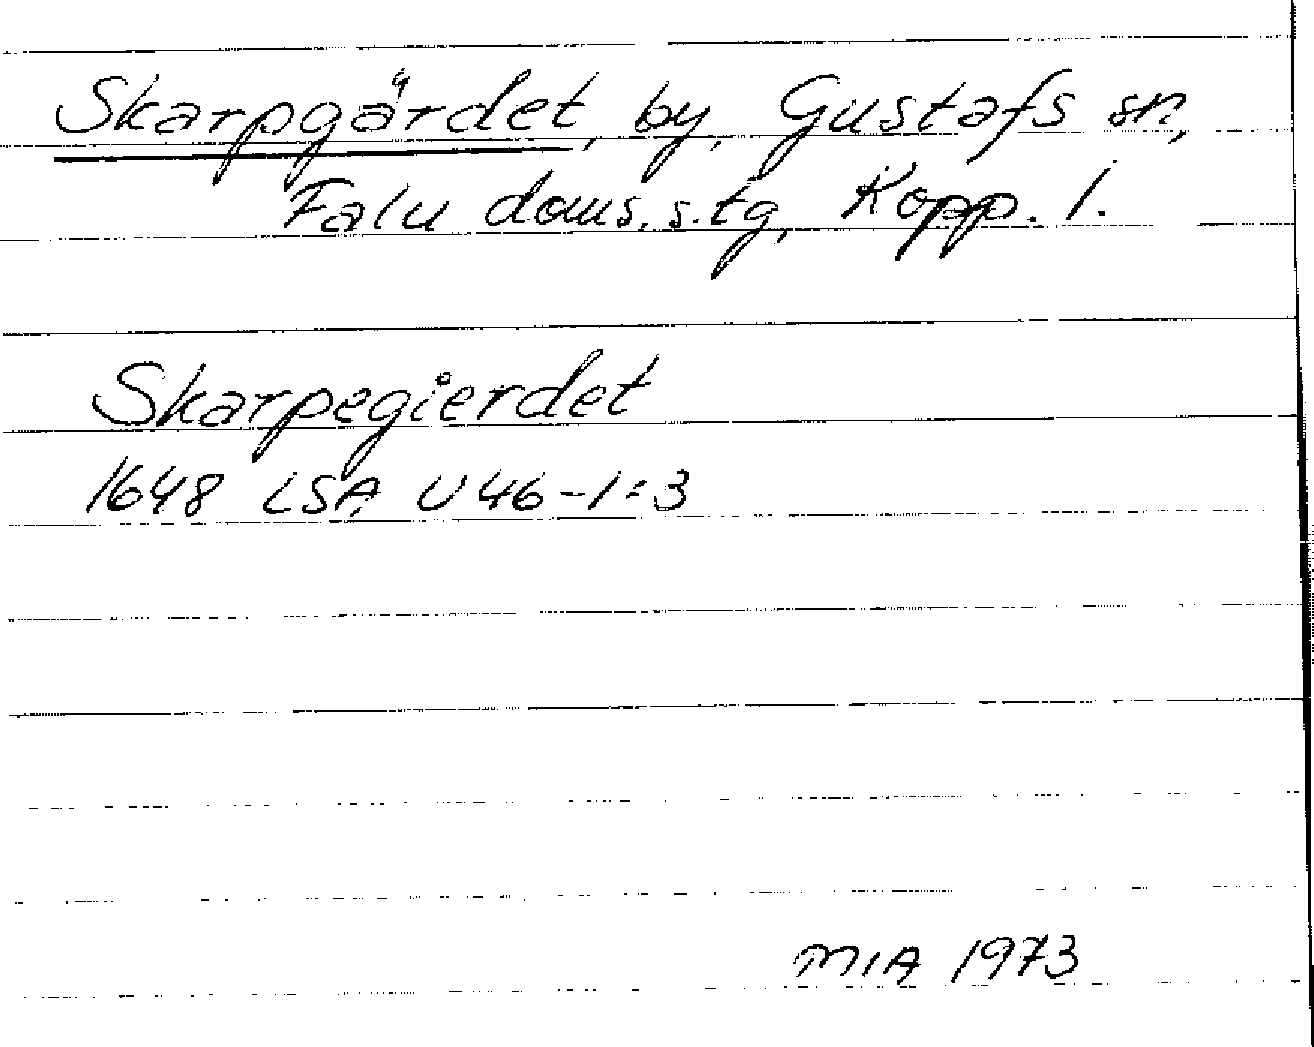 Skarpgärdet, by, Gustafs sn,
Falu doms. s. tg, Kopp. l.
Skarpegierdet
1648 LSA U46-1:3
MIA 1973